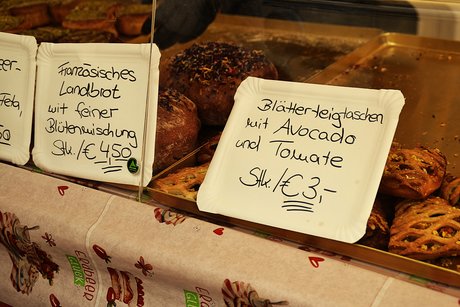 Französisches
Landbrot
mit feiner
Blütenmischung
Stk/€4,50
Blätterteigtaschen
mit Avocado
und Tomate
Stk./€3,-